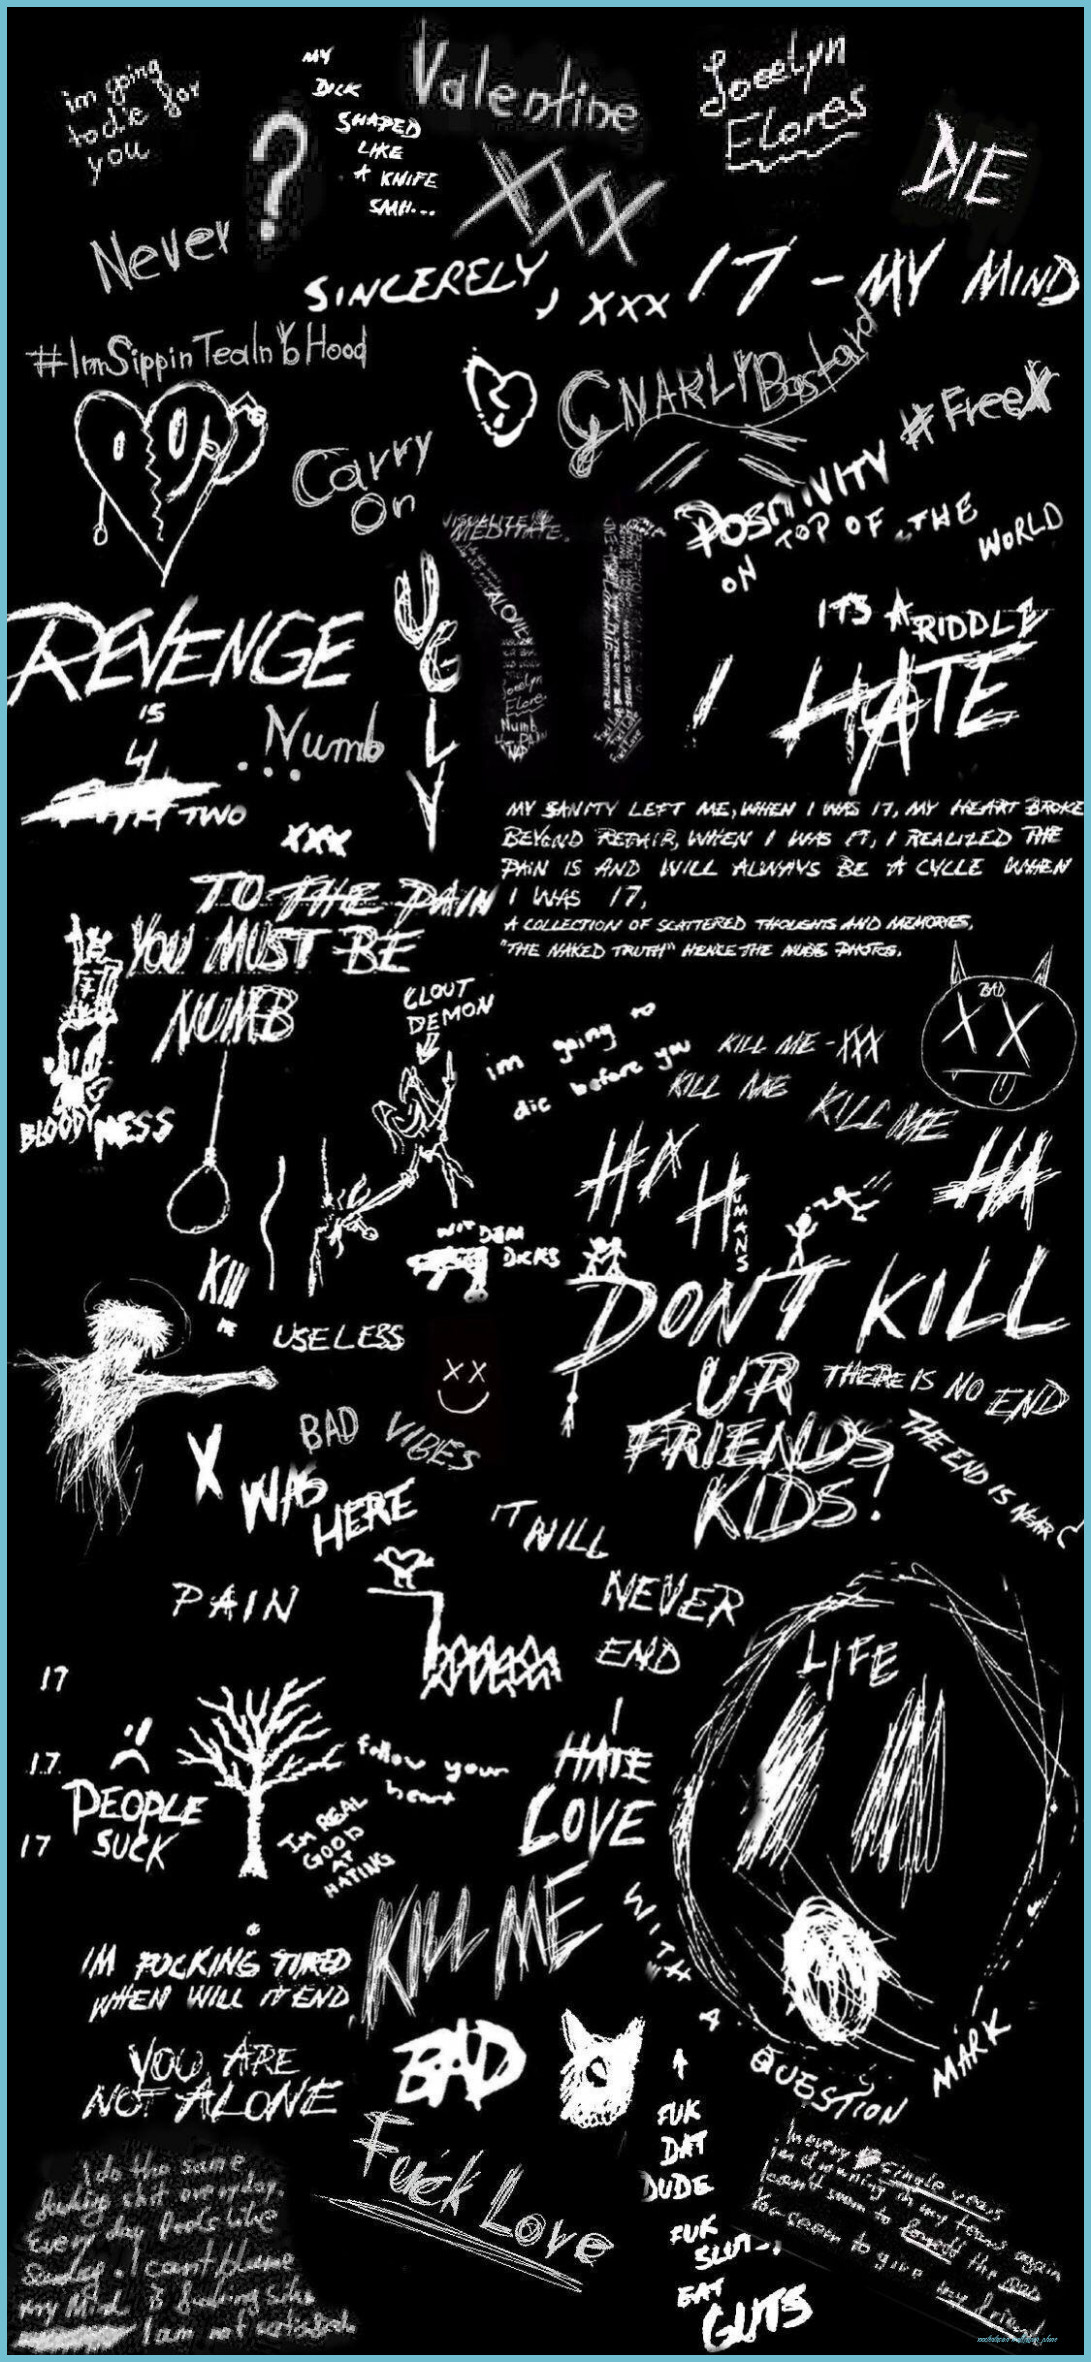 im going
to die for
you
?
MY
DICK
SHAPED
LIKE
A KNIFE
SMH...
Valentine
XXX
Jocelyn
Flores
DIE
Never
SINCERELY, XXX
17 - MY MIND
#ImSippinTeaInYoHood
GNARLY Bastard
#FreeX
Carry
On
POSITIVITY
ON TOP OF THE WORLD
VISUALIZE
MEDITATE.
ALONE
Jocelyn
Flores
Numb
REVENGE
IS
4
TWO
UGLY
...Numb
XXX
ITS A RIDDLE
I HATE
MY SANITY LEFT ME, WHEN I WAS 17, MY HEART BROKE
BEYOND REPAIR, WHEN I WAS 17, I REALIZED THE
PAIN IS AND WILL ALWAYS BE A CYCLE WHEN
I WAS 17,
A COLLECTION OF SCATTERED THOUGHTS AND MEMORIES,
"THE NAKED TRUTH" HENCE THE NUDE PHOTOS.
TO THE PAIN
YOU MUST BE
NUMB
CLOUT
DEMON
BLOODY MESS
im going to
die before you
KILL ME - XXX
KILL ME
KILL ME
BAD
XX
HA
HUMANS
HA
WIT DEM
DICKS
KIll
ME
USELESS
XX
DONT KILL
UR
FRIENDS
KIDS!
THERE IS NO END
THE END IS NEAR
BAD VIBES
X
WAS
HERE
IT WILL
NEVER
END
PAIN
LIFE
17
17
17
PEOPLE
SUCK
follow your
heart
IM REAL
GOOD
AT
HATING
I
HATE
LOVE
KILL ME
WITH
A
QUESTION
MARK
IM FUCKING TIRED
WHEN WILL IT END
YOU ARE
NOT ALONE
BAD
FUK
DAT
DUDE
FUK
EAT
GUTS
Fuck Love
I do the same
fucking shit everyday.
Every day feels like
Sunday. I cant
my Mind
I am not
In every single years
Im drowning in my tears again
I cant seem to forget the
You seem to give my